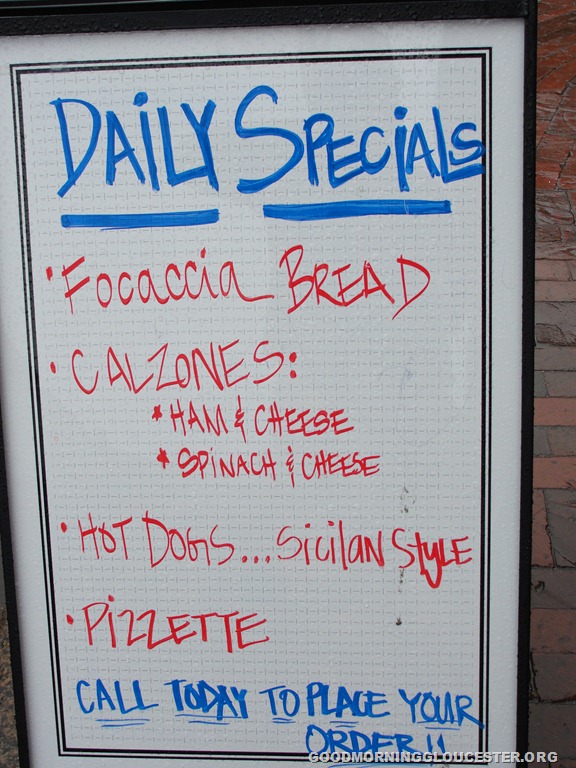 DAiLY SPECiALS
• Focaccia BREAD
• CALZONES:
* HAM & CHEESE
* SPINACH & CHEESE
• HOT DOGS... Sicilian StyLE
• PiZZETTE
CALL TODAY TO PLACE YOUR
ORDER!!
GOODMORNINGGLOUCESTER.ORG